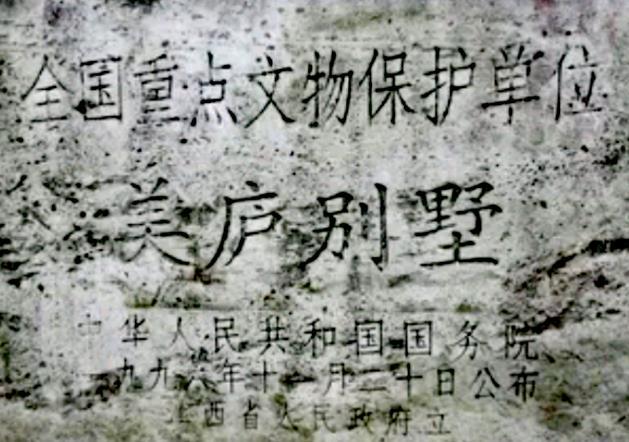 全国重点文物保护单位
美庐别墅
中华人民共和国国务院
一九九六年十一月二十日公布
江西省人民政府立